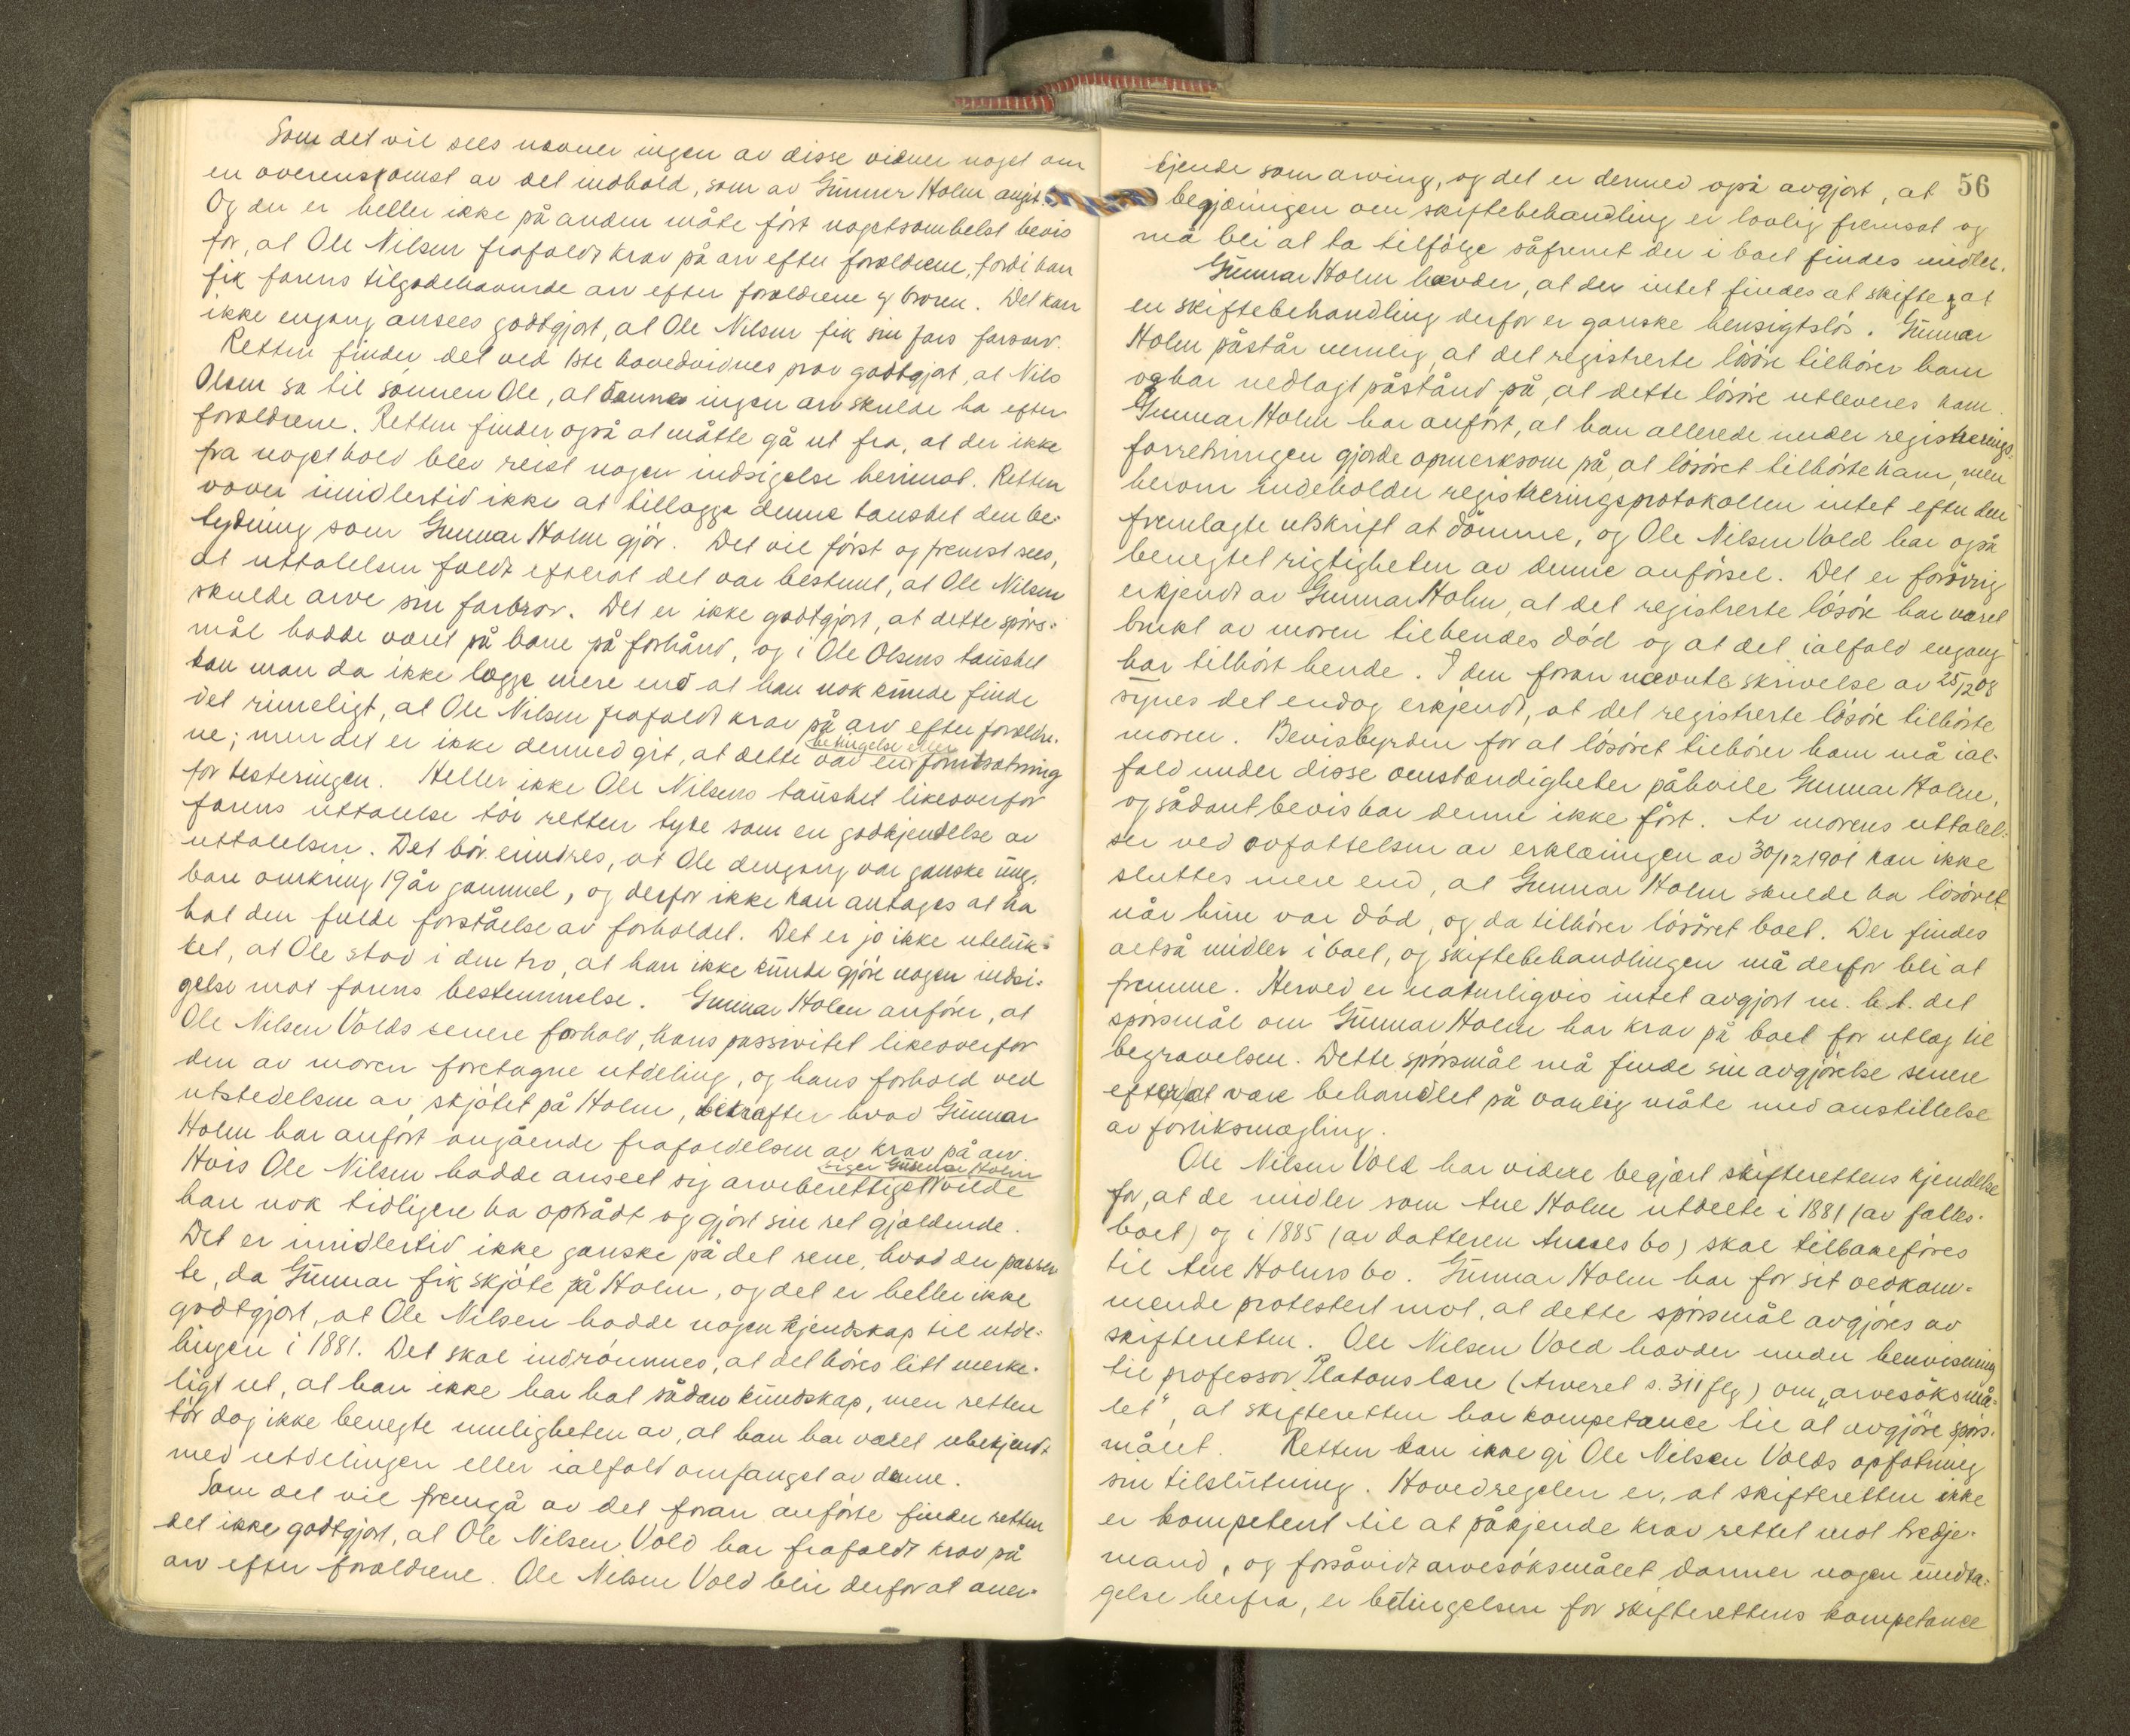 Som det vil sees nævner ingen av disse vidner noget om
en overenskomst av det indhold, som av Gunnar Holm angit.
Og der er heller ikke på anden måte ført nogetsomhelst bevis
for, at Ole Nilsen frafaldt krav på arv efter forældrene, fordi han
fik farens tilgodehavende arv efter forældrene og broren. Det kan
ikke engang ansees godtgjort, at Ole Nilsen fik sin fars farsarv.
Retten finder det ved 1ste hovedvidnes prov godtgjort, at Nils
Olsen sa til sønnen Ole, at denne ingen arv skulde ha efter
forældrene. Retten finder også at måtte gå ut fra, at der ikke
fra noget hold blev reist nogen indsigelse herimot. Retten
vover imidlertid ikke at tillægge denne taushet den be-
tydning som Gunnar Holm gjør. Det vil først og fremst sees,
at uttalelsen faldt efterat det var bestemt, at Ole Nilsen
skulde arve sin farbror. Det er ikke godtgjort, at dette spørs-
mål hadde været på bane på forhånd, og i Ole Olsens taushet
kan man da ikke lægge mere end at han nok kunde finde
det rimeligt, at Ole Nilsen frafaldt krav på arv efter forældre-
ne; men det er ikke dermed git, at dette var en betingelse eller forutsætning
for testeringen. Heller ikke Ole Nilsens taushet likeoverfor
farens uttalelse tør retten tyde som en godkjendelse av
uttalelsen. Det bør erindres, at Ole dengang var ganske ung,
bare omkring 19 år gammel, og derfor ikke kan antages at ha
hat den fulde forståelse av forholdet. Det er jo ikke uteluk-
ket, at Ole stod i den tro, at han ikke kunde gjøre nogen indsi-
gelse mot farens bestemmelse. Gunnar Holm anfører, at
Ole Nilsen Volds senere forhold, hans passivitet likeoverfor
den av moren foretagne utdeling, og hans forhold ved
utstedelsen av skjøtet på Holm, bekræfter hvad Gunnar
Holm har anført angående frafaldelsen av krav på arv.
Hvis Ole Nilsen hadde anseet sig arveberettiget siger Gunnar Holm vilde
han nok tidligere ha optrådt og gjort sin ret gjældende.
Det er imidlertid ikke ganske på det rene, hvad der passer-
te, da Gunnar fik skjøte på Holm, og det er heller ikke
godtgjort, at Ole Nilsen hadde nogen kjendskap til utde-
lingen i 1881. Det skal indrømmes, at det høres litt merke-
ligt ut, at han ikke har hat sådan kundskap, men retten
tør dog ikke benegte muligheten av, at han har været ubekjendt
med utdelingen eller ialfald omfanget av denne.
Som det vil fremgå av det foran anførte finder retten
det ikke godtgjort, at Ole Nilsen Vold har frafaldt krav på
arv efter forældrene. Ole Nilsen Vold blir derfor at aner-
56
kjende som arving, og det er dermed også avgjort, at
begjæringen om skiftebehandling er lovlig fremsat og
må bli at ta tilfølge såfremt der i boet findes midler.
Gunnar Holm hævder, at der intet findes at skifte og at
en skiftebehandling derfor er ganske hensigtsløs. Gunnar
Holm påstår nemlig, at det registrerte løsøre tilhører ham
og har nedlagt påstand på, at dette løsøre utleveres ham.
Gunnar Holm har anført, at han allerede under registrerings-
forretningen gjorde opmerksom på, at løsøret tilhørte ham, men
herom indeholder registreringsprotokollen intet efter den
fremlagte utskrift at dømme, og Ole Nilsen Vold har også
benegtet rigtigheten av denne anførsel. Det er forøvrig
erkjendt av Gunnar Holm, at det registrerte løsøre har været
brukt av moren til hendes død og at det ialfald engang
har tilhørt hende. I den foran nævnte skrivelse av 25/2 08
synes det endog erkjendt, at det registrerte løsøre tilhørte
moren. Bevisbyrden for at løsøret tilhører ham må ial-
fald under disse omstændigheter påhvile Gunnar Holm,
og sådant bevis har denne ikke ført. Av morens uttalel-
ser ved avfattelsen av erklæringen av 30/12 1901 kan ikke
sluttes mere end, at Gunnar Holm skulde ha løsøret
når hun var død, og da tilhører løsøret boet. Der findes
altså midler i boet, og skiftebehandlingen må derfor bli at
fremme. Herved er naturligvis intet avgjort m. h. t. det
spørsmål om Gunnar Holm har krav på boet for utlæg til
begravelsen. Dette spørsmål må finde sin avgjørelse senere
efter at være behandlet på vanlig måte med anstillelse
av forliksmægling.
Ole Nilsen Vold har videre begjært skifterettens kjendelse
for, at de midler som Ane Holm utdelte i 1881 (av fælles-
boet) og i 1885 (av datteren Annes bo) skal tilbakeføres
til Ane Holms bo. Gunnar Holm har for sit vedkom-
mende protestert mot, at dette spørsmål avgjøres av
skifteretten. Ole Nilsen Vold hævder under henvisning
til professor Platous lære (Arveret s. 311 flg) om „arvesøksmå-
let“, at skifteretten har kompetance til at avgjøre spørs-
målet. Retten kan ikke gi Ole Nilsen Volds opfatning
sin tilslutning. Hovedregelen er, at skifteretten ikke
er kompetent til at påkjende krav rettet mot tredje-
mand, og forsåvidt arvesøksmålet danner nogen undta-
gelse herfra, er betingelsen for skifterettens kompetance